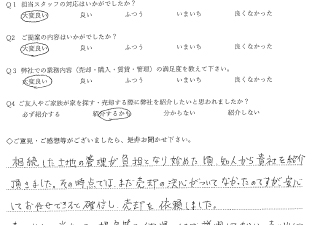 Q1 担当スタッフの対応はいかがでしたか？
大変良い 良い ふつう いまいち 良くなかった
Q2 ご提案の内容はいかがでしたか？
大変良い 良い ふつう いまいち 良くなかった
Q3 弊社での業務内容（売却・購入・賃貸・管理）の満足度を教えて下さい。
大変良い 良い ふつう いまいち 良くなかった
Q4 ご友人やご家族が家を探す・売却する際に弊社を紹介したいと思われましたか？
必ず紹介する 紹介するかも 分からない 紹介しない
◇ご意見・ご感想等がございましたら、是非お聞かせ下さい。
相続した土地の管理が負担となり始めた頃、知人から貴社を紹介
頂きました。その時点では、まだ売却の決心がついてなかったのですが、安心
してお任せできると確信し、売却を依頼しました。